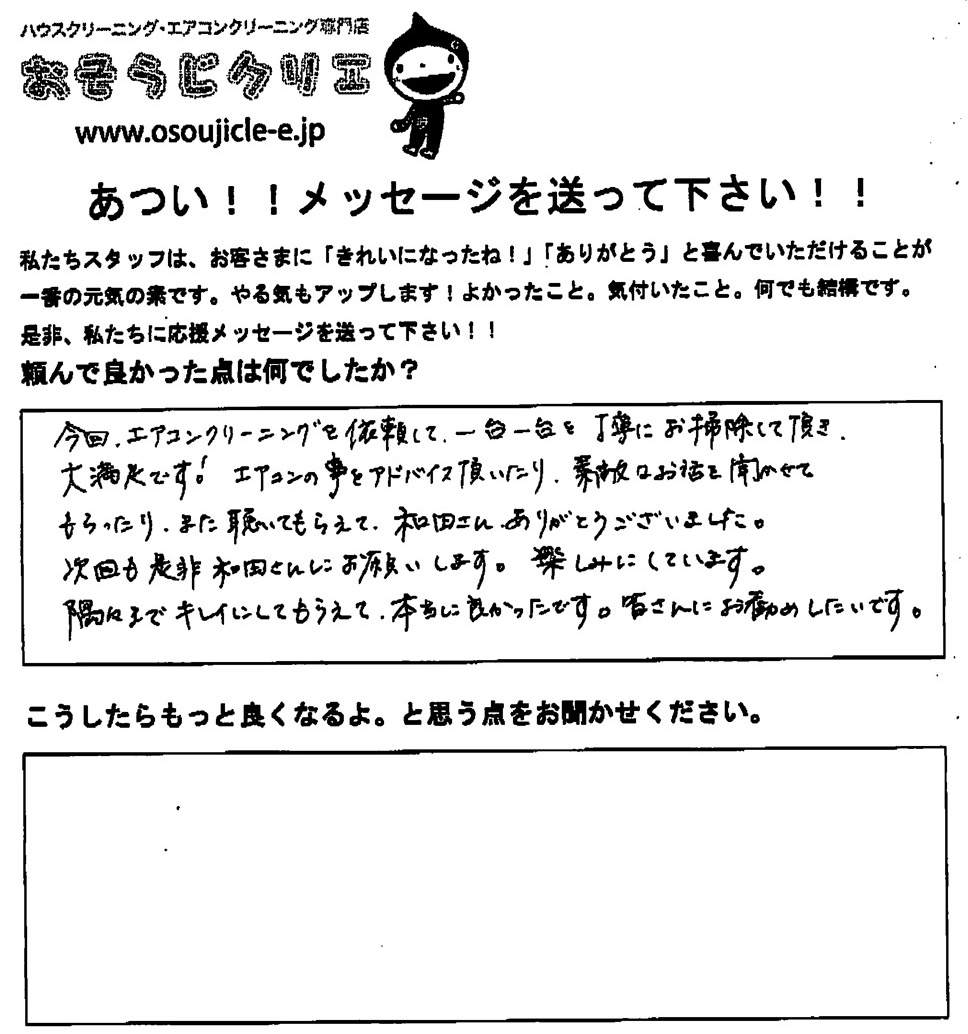 ハウスクリーニング・エアコンクリーニング専門店
おそうじクリエ
www.osoujicle-e.jp
あつい！！メッセージを送って下さい！！
私たちスタッフは、お客さまに「きれいになったね！」「ありがとう」と喜んでいただけることが
一番の元気の素です。やる気もアップします！よかったこと。気付いたこと。何でも結構です。
是非、私たちに応援メッセージを送って下さい！！
頼んで良かった点は何でしたか？
今回、エアコンクリーニングを依頼して、一台一台を丁寧にお掃除して頂き、
大満足です！エアコンの事をアドバイス頂いたり、素敵なお話を聞かせて
もらったり、また聴いてもらえて、和田さん、ありがとうございました。
次回も是非和田さんにお願いします。楽しみにしています。
隅々までキレイにしてもらえて、本当に良かったです。皆さんにお勧めしたいです。
こうしたらもっと良くなるよ。と思う点をお聞かせください。